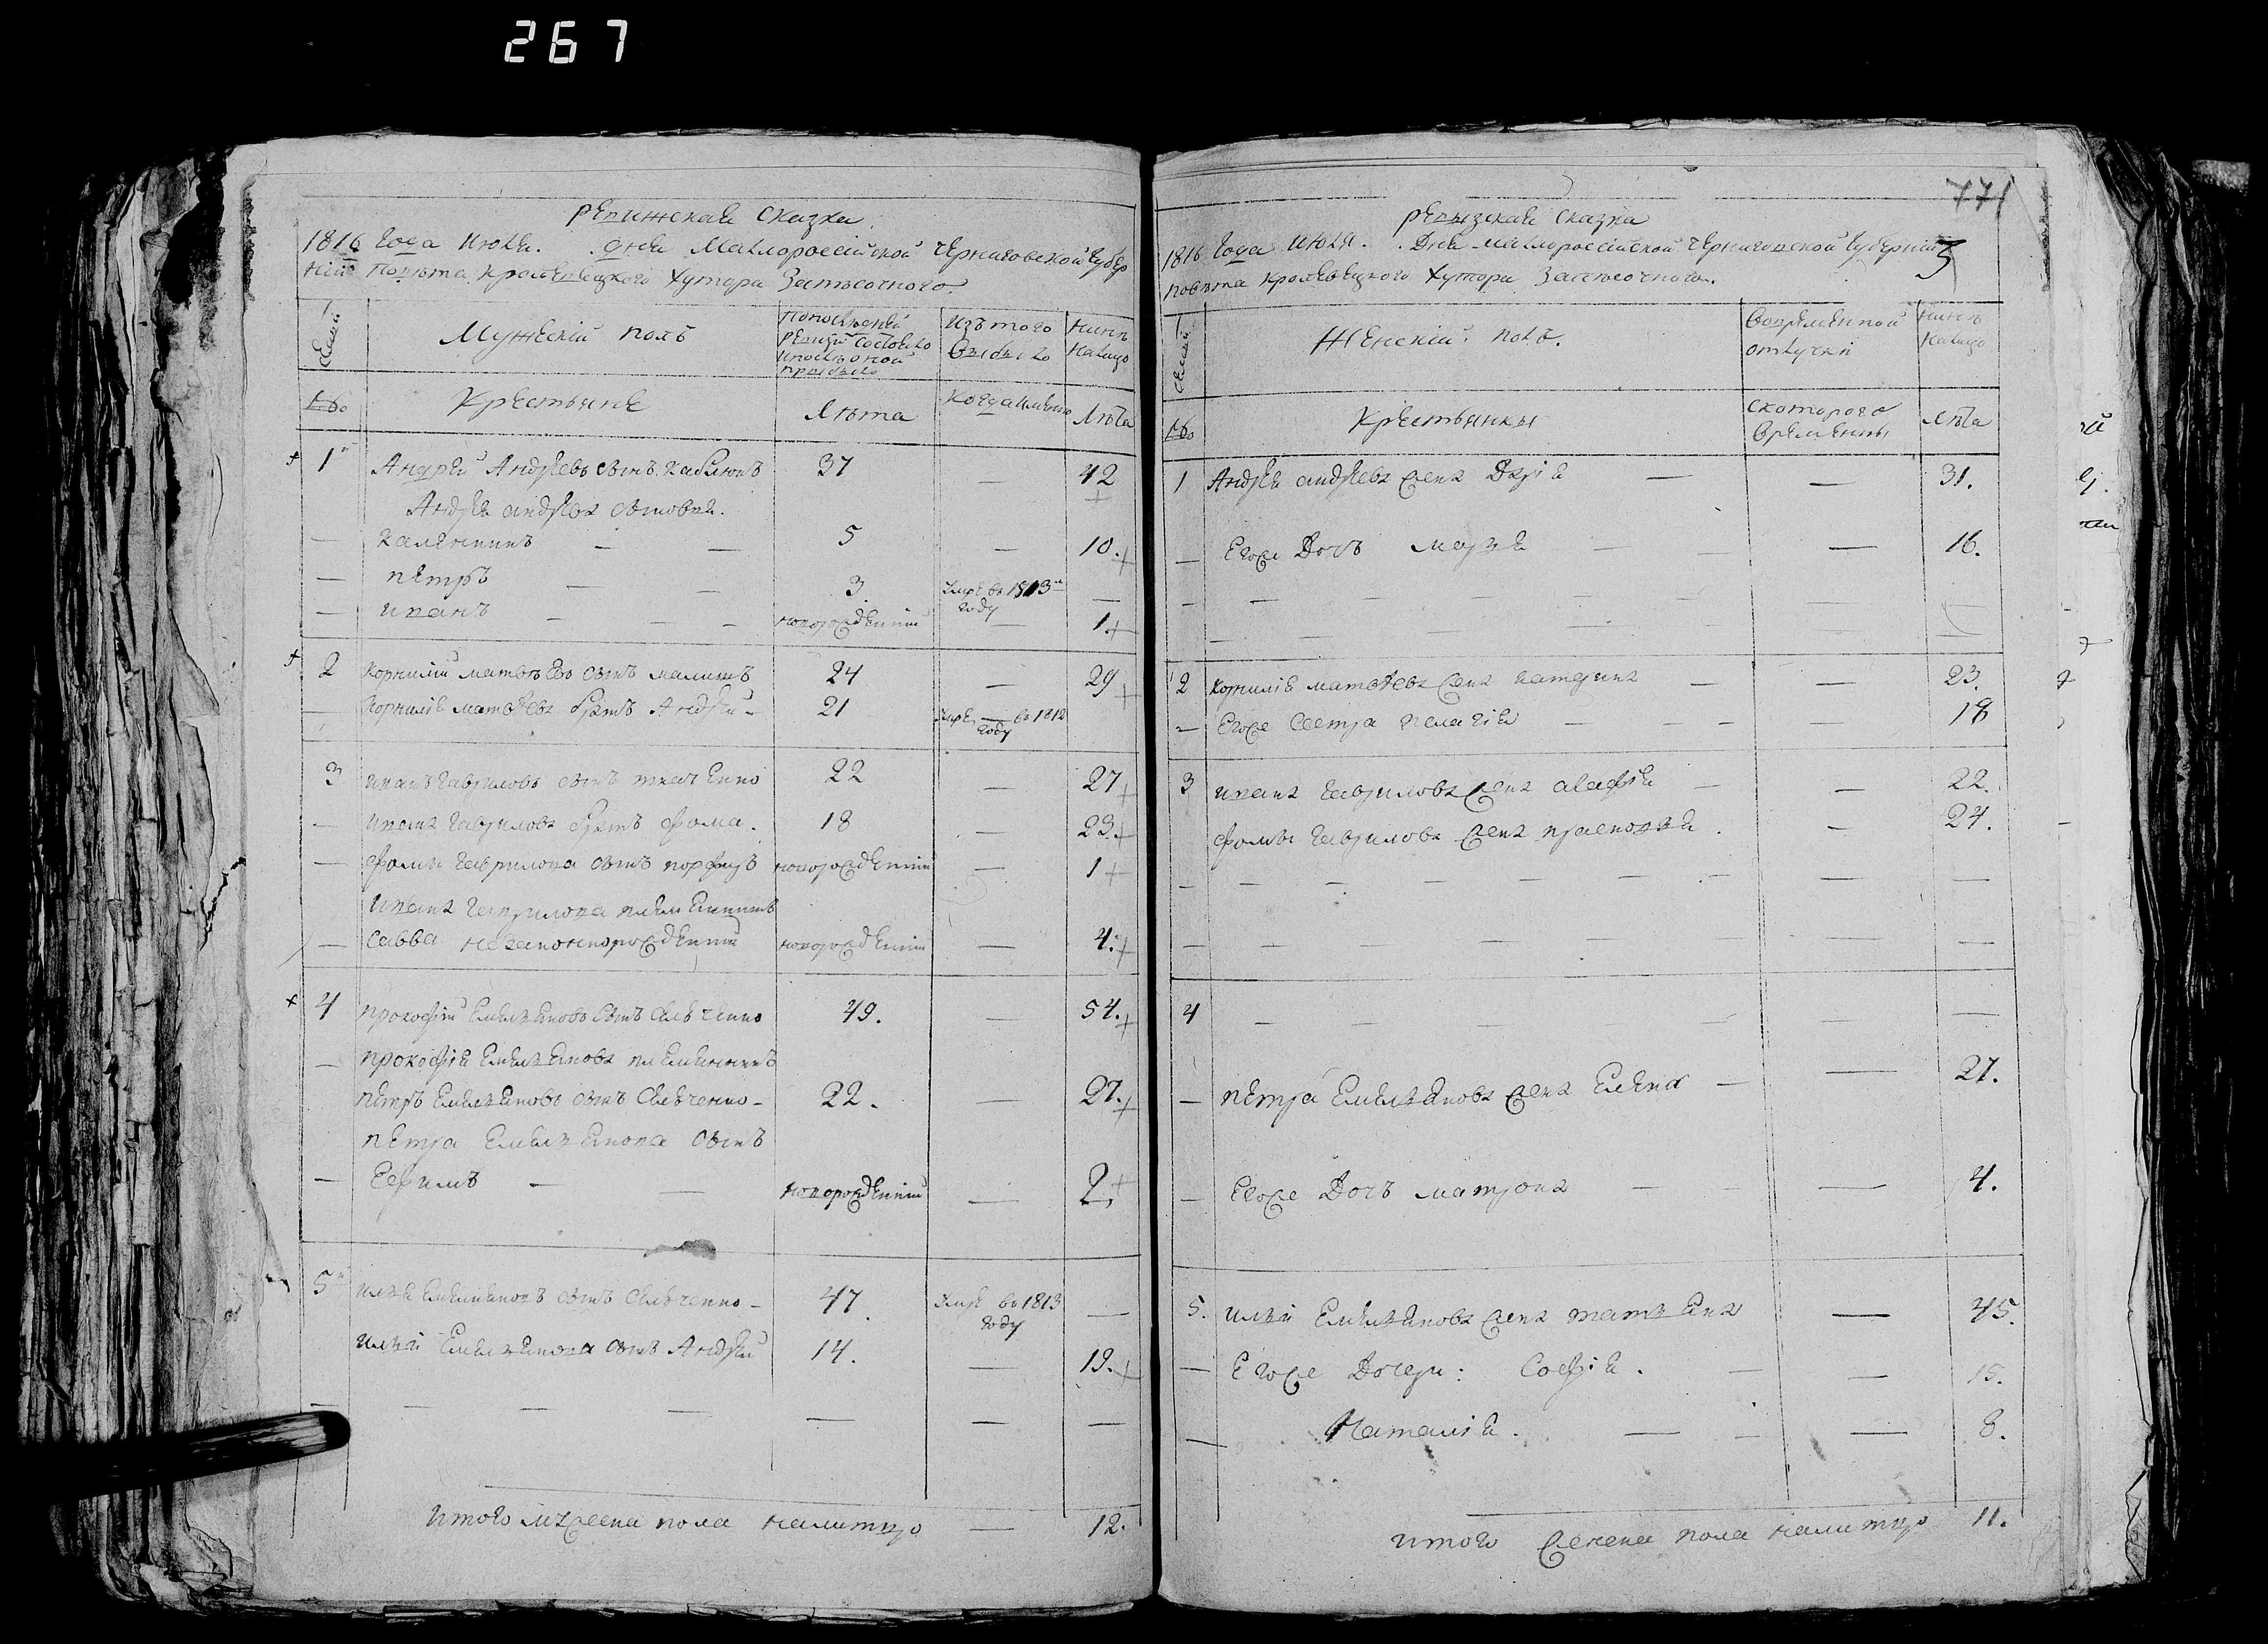 267
Ревижская сказка
1816 года июля. дня Малороссійской Черниговской Губер
ніи Повѣта Кролевецкого Хутора
Семьи
Мужескій полъ
По последней ревизіи состояло и после оной прибыло
Изъ того выбыло
Нинѣ налицо
№
Крестьяне
Лѣта
Когда имянно
Лѣта
1 Андрей Андреевъ сынъ 37 — 42
Андрея Андреева сыновья.
— Калениикъ — — 5 — 10.
— Петръ — — 3. Умре въ 1813 году —
— Иванъ — — — новорожденній — 1.
2 Корнилій Матвѣевъ сынъ 24 — 29
— Корнилія Матвѣева братъ Андрей 21 Умре въ 1812 году
3 Иванъ Гавриловъ сынъ Ткаченко 22 — 27
— Ивана Гаврилова братъ Фома. 18 — 23.
— Фомы Гаврилова сынъ новорожденній — 1
Ивана Гаврилова племенникъ
— Савва незаконнорожденній новорожденній — 4.
4 Прокофій Емельяновъ сынъ 49. — 54.
— Прокофія Емельянова племянникъ
Петръ Емельяновъ сынъ 22. — 27.
Петра Емельянова сынъ
— Ефимъ — — новорожденній — 2.
5 Илья Емельяновъ сынъ 47. Умре въ 1813 году —
Ильи Емельянова сынъ Андрей 14. — 19.
— — — — — — —
Итого мужеска пола налитцо — 12.
771
Ревизская сказка
1816 года июля. дня Малороссійской Черниговской Губерніи
5
Повѣта Кролевецкого Хутора
Семьи
Женскій полъ.
Во временной отлучки
Нинѣ налицо
№
Крестьянки
С котораго времены
Лѣта
1 Андрея Андреева жена Дарія — — 31.
— Егоже дочь — — 16.
2 Корнилія Матвѣева жена Катерина — — 23.
— Егоже сестра Пелагія — — — — 18
3 Ивана Гаврилова жена Агафія — — 22.
Фомы Гаврилова жена — 24.
— — — — — — — — —
— — — — — — — — —
4 — — — — — — — —
— Петра Емельянова жена Елена — — 27.
— Егоже дочь Матрона — — — 4.
5. Ильи Емельянова жена Татьяна — 45.
— Егоже дочери: Софія. — — 15.
— Наталія. — — — 8.
Итого женска пола налитцо 11.